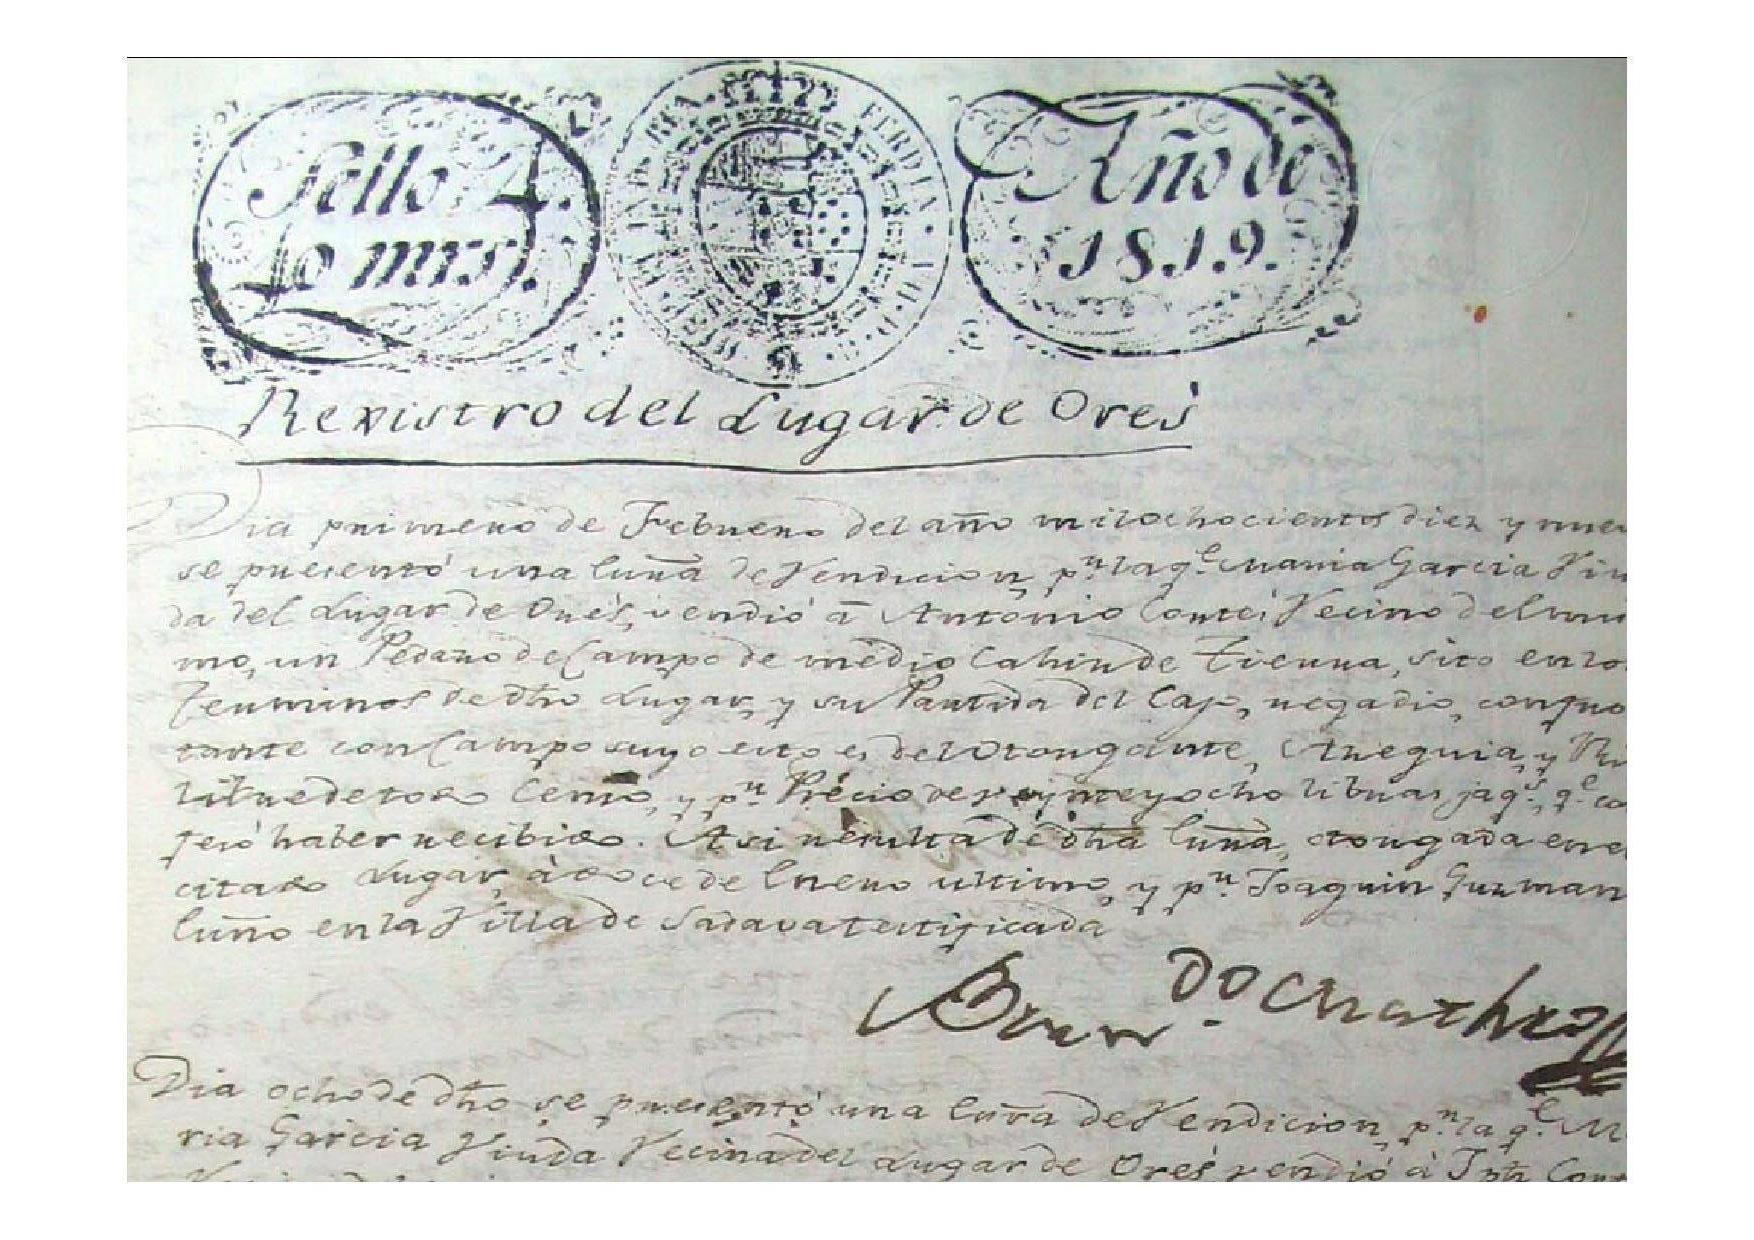 Sello 4.
40 mrs.
FERDIN. VII.
Año de
1819.
Rexistro del Lugar de Orés
Dia primero de Febrero del año mil ochocientos diez y nuev
se presentó una Cura de Vendicion, pr. la qe. Maria Garcia Viu
da del Lugar de Orés, vendió á Antonio Conté, Vecino del mis
mo, un Pedazo de Campo de medio Cahiz de Tierra, sito en lo
Terminos de dho Lugar, y su Partida del Cajo, regadio, confron
tante con Campo suyo esto es del Otorgante, Azequia, y Ri
libre de todo Censo, y pr. Précio de y ocho libras jaqs. qe. co
fesó haber recibido. Asi resulta de dha Cura, otorgada en el
citado Lugar, à doce de Enero ultimo, y pr. Joaquin Guzman
Cuño en la Villa de Sadava testificada
Dia ocho de dho se presentó una Cura de Vendicion, pr. la qe. M
ria Garcia Viuda Vecina del Lugar de Orés vendió à Jph Cont